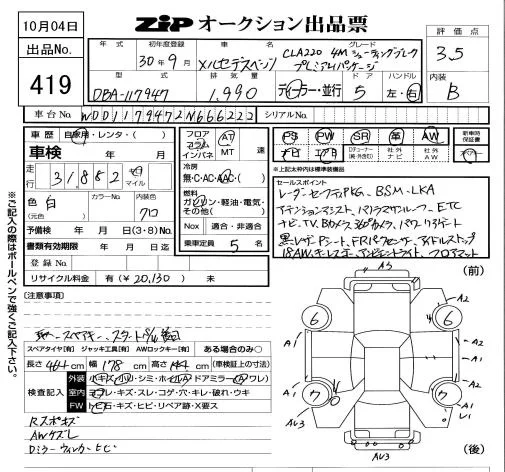 10月04日
出品No.
419
ZIP オークション出品票
評価点
3.5
内装
B
年式
初年度登録
30年9月
車名
メルセデスベンツ
グレード
CLA220 4M シューティングブレーク
プレミアムパッケージ
型式
DBA-117947
排気量
1,990
ディーラー・並行
ドア
5
ハンドル
左・右
車台No.
WDD1179472N666222
シリアルNo.
車歴
自家用・レンタ・( )
車検
年 月
走行
31,882
キロ
マイル
色
(元色)
白
カラーNo.
内装色
クロ
予備検 年 月 日(3・8)No.
書類有効期限 年 月 日迄
登録No.
リサイクル料金 有(¥20,130) 未
フロア
コラム
インパネ
AT
MT
速
冷房
無・C・AC・AAC・( )
燃料
ガソリン・軽油・電気・
その他( )
Nox
適合・非適合
乗車定員 5 名
PS
PW
SR
革
AW
ナビ
エアB
Dチューナー
(純・外含む)
社外
ナビ
社外
AW
新車時
保証書
※上記太枠内は標準装備品
セールスポイント
レーダーセーフティPKG、BSM・LKA
ナビ、TV、Bカメラ、360°カメラ、パワーリアゲート
黒レザーPシート、FRパワーシート、アイドルストップ
18AW、キーレスゴー、アンビエントライト、フロアマット
※ご記入の際はボールペンで強くご記入下さい。
[注意事項]
スペアタイヤ[有] ジャッキ工具[有] AWロックキー[有] ある場合のみ○
長さ 464 cm 幅 178 cm 高さ 144 cm (車検証上の寸法)
検査記入
外装
小キズ・小凹・シミ・ホイールA ドアミラー(A ワレ)
室内
ヨゴレ・キズ・スレ・コゲ・穴・キレ・破れ・ウキ
FW
トビ石・キズ・ヒビ・リペア跡・X要ス
Rスポキズ
AWケズレ
ドミラーウィンカーヒビ
(前)
A3
A1
A2
A1
A2
A1
A2
V1
6
6
ワ
ワ
AU3
AU3
(後)